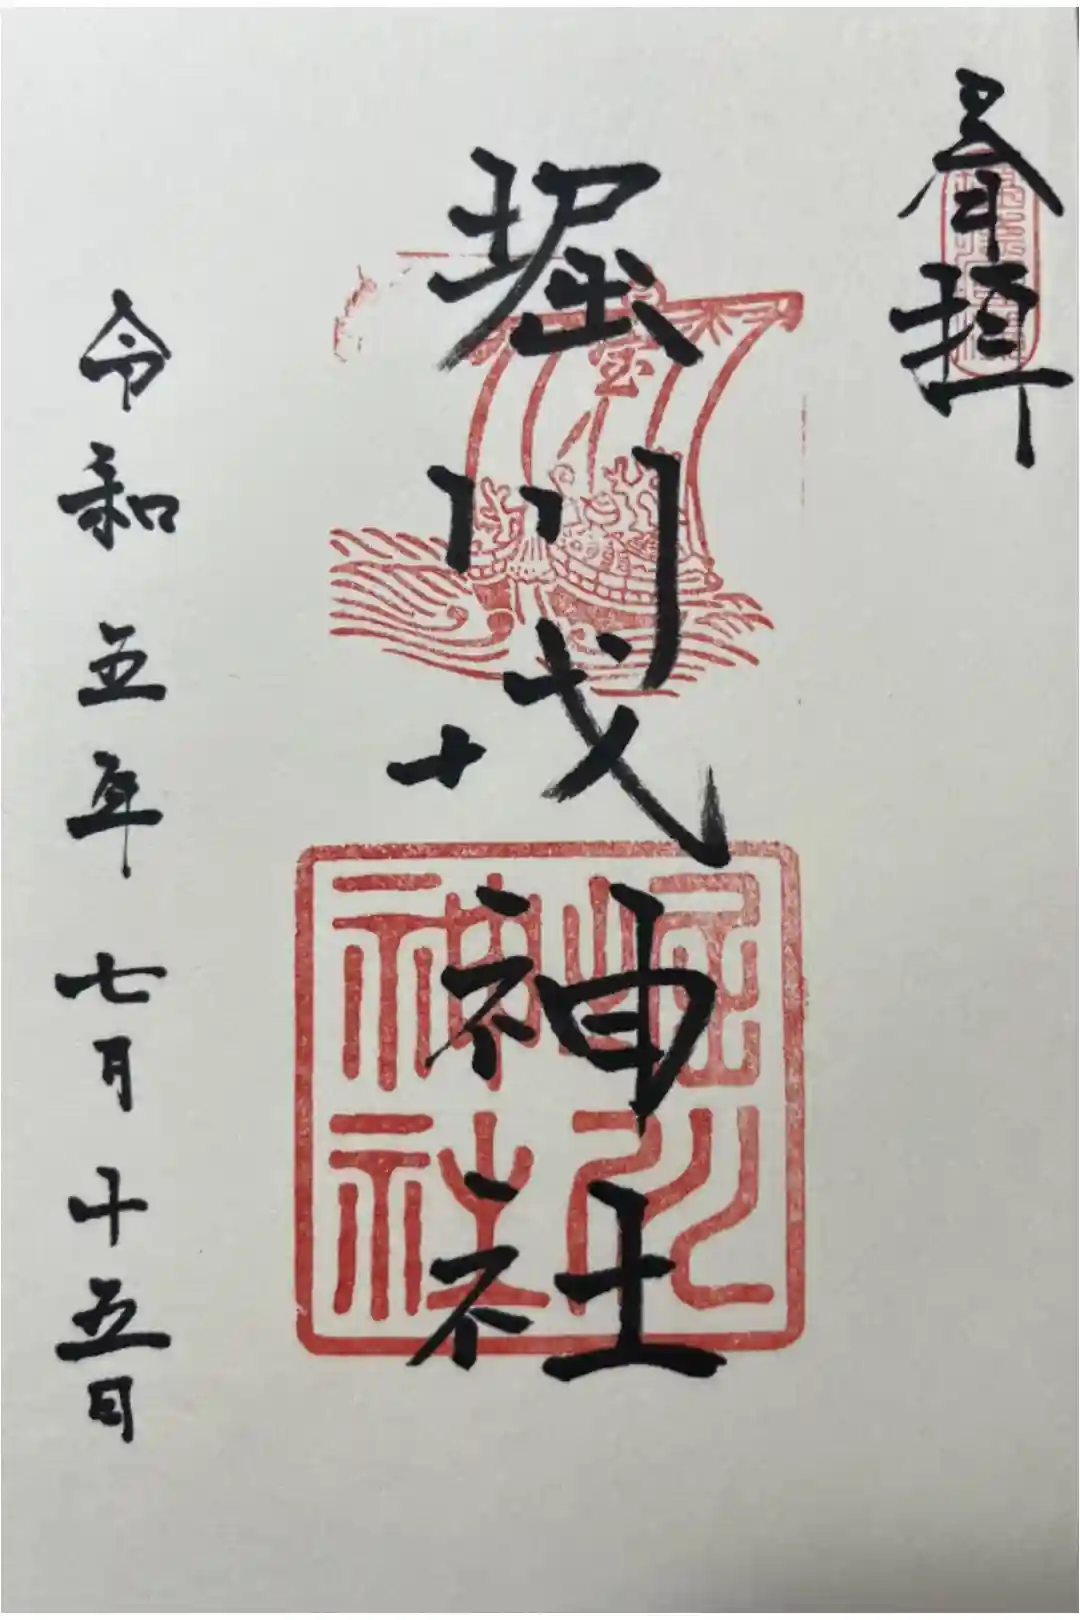 参拝
堀川戎神社
宝
堀川
神社
令和五年七月十五日